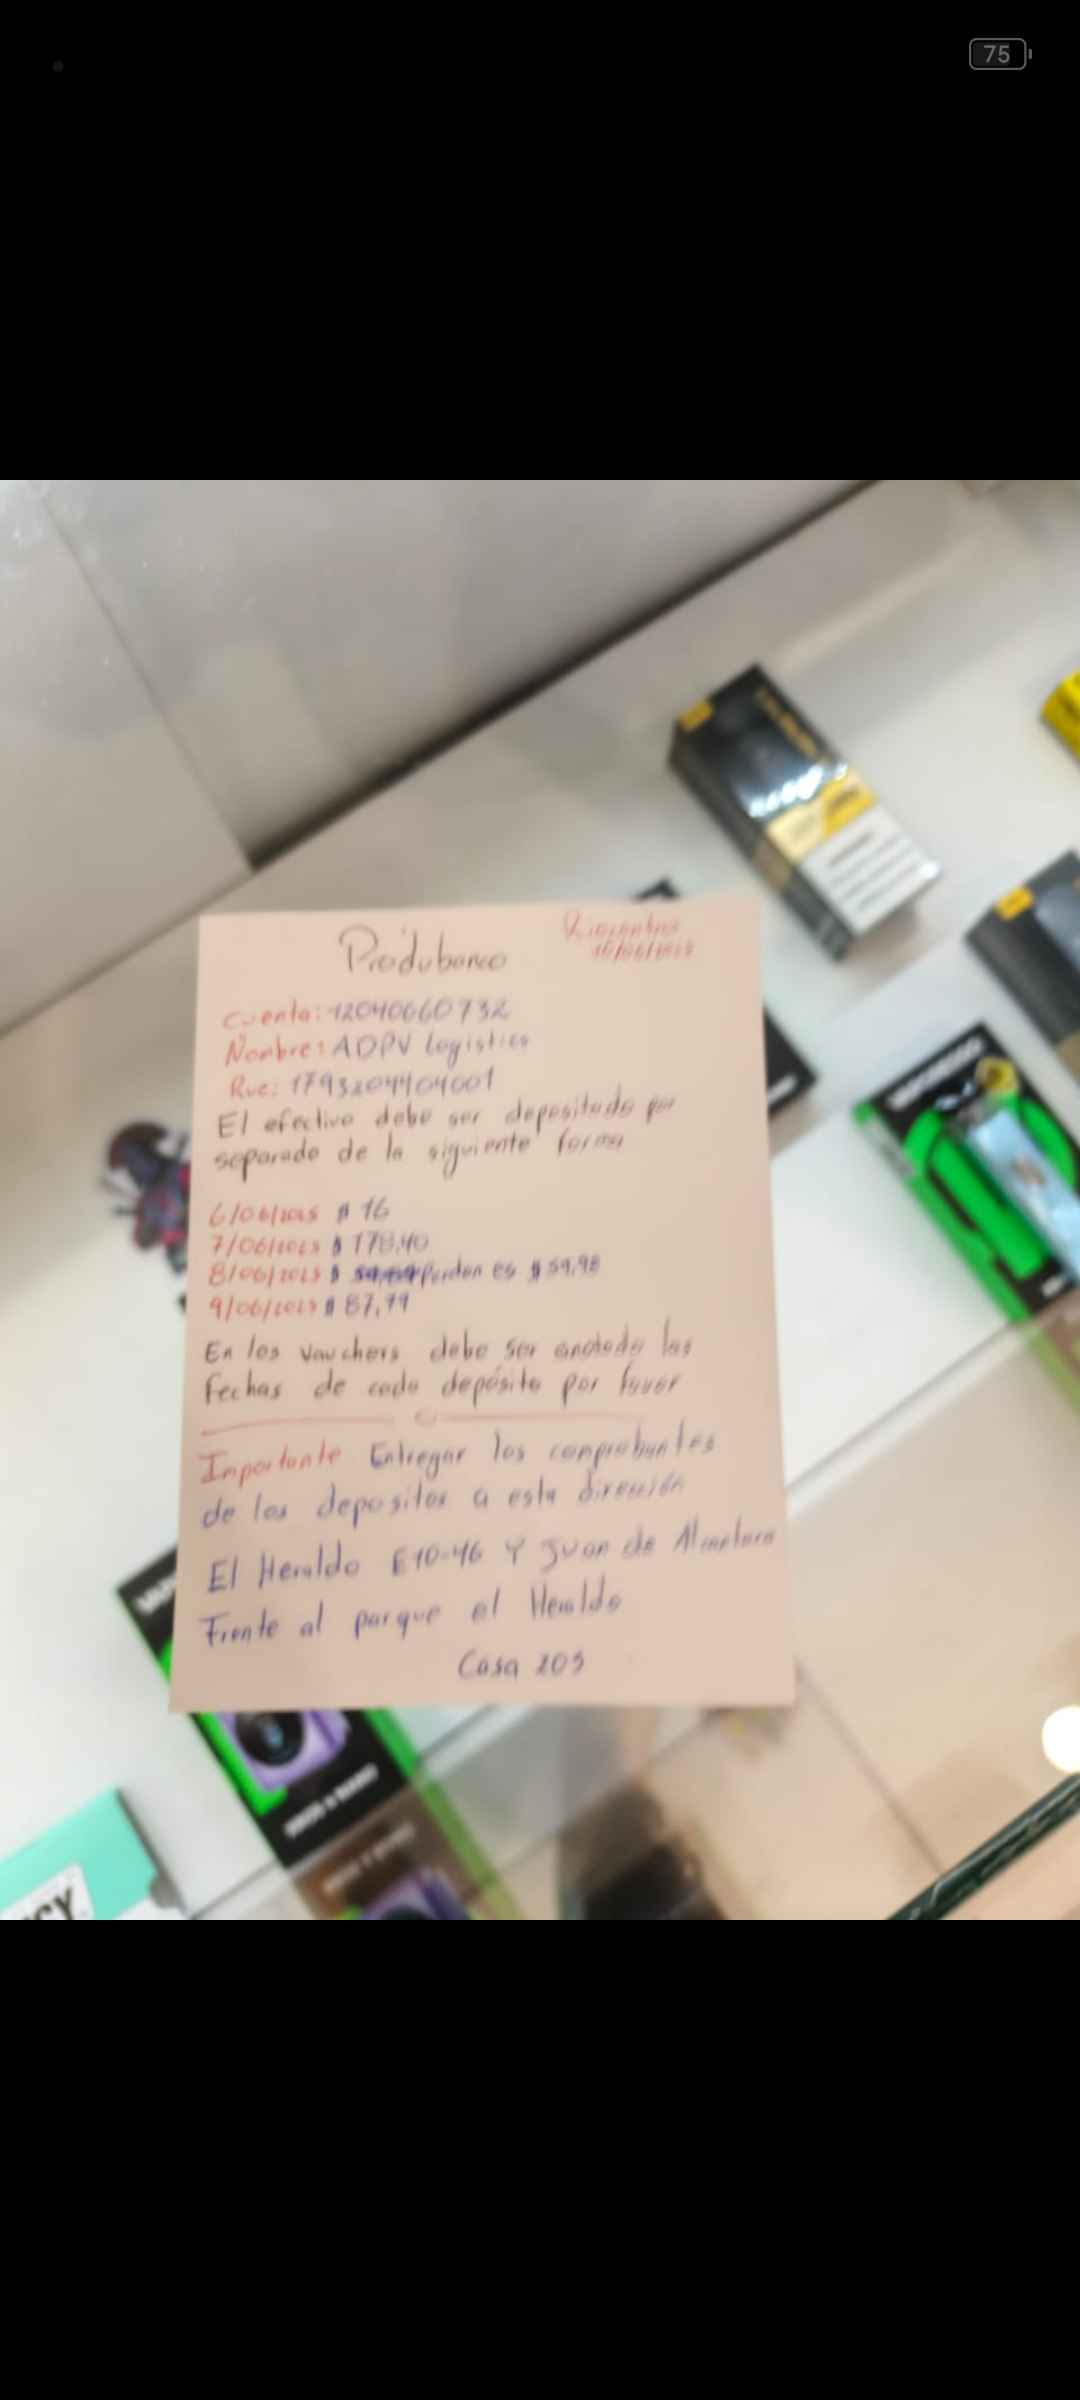 75
Produbanco
Cuenta: 12040660732
Nombre: ADPV Logistics
Ruc: 1793204404001
El efectivo debe ser depositado por
separado de la siguiente forma
6/06/2025 $ 16
7/06/2025 $ 178,40
8/06/2025 $ Perdon es $ 59,98
9/06/2025 $ 87,79
En los vauchers debe ser anotado las
fechas de cada depósito por favor
Importante Entregar los comprobantes
de los depositos a esta dirección
El Heraldo E10-46 Y Juan de Alcantara
Frente al parque el Heraldo
Casa 203